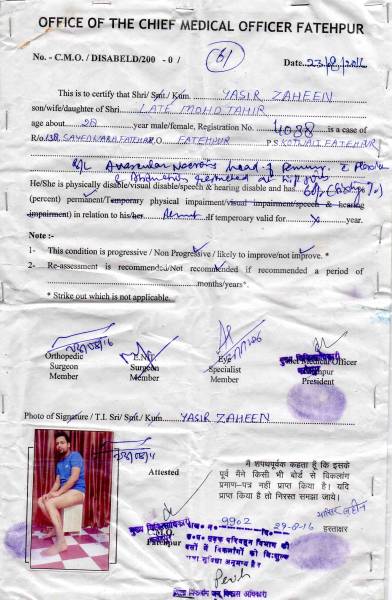 OFFICE OF THE CHIEF MEDICAL OFFICER FATEHPUR
No. - C.M.O. / DISABELD/200 - 0 / 61 Date..23/8/2016
This is to certify that Shri/ Smt./ Kum. YASIR ZAHEEN
son/wife/daughter of Shri LATE MOHD TAHIR
age about 28 year male/female, Registration No. 4088 is a case of
R/o 138, SAYEDWARA FATEHPUR P.O. FATEHPUR P.S. KOTWALI FATEHPUR
B/L Avascular Necrosis head of Femur
He/She is physically disable/visual disable/speech & hearing disable and has 60%
(percent) permanent/Temporary physical impairment/visual impairment/speech & hearing
impairment) in relation to his/her .If temperoary valid for x year.
Note :-
1- This condition is progressive / Non Progressive / likely to improve/not improve. *
2- Re-assessment is recommended/Not recommended if recommended a period of
months/years*.
* Strike out which is not applicable.
Orthopedic E.N.T. Eye Chief Medical Officer
Surgeon Surgeon Specialist Fatehpur
Member Member Member President
Photo of Signature / T.I. Sri/ Smt./ Kum. YASIR ZAHEEN
Attested
C.M.O.
Fatehpur
मैं शपथपूर्वक कहता हूँ कि इसके
पूर्व मैंने किसी भी बोर्ड से विकलांग
प्रमाण-पत्र नहीं प्राप्त किया है। यदि
प्राप्त किया है तो निरस्त समझा जाये।
हस्ताक्षर
मुख्य चिकित्साधिकारी
9902 29-8-16
उ० प्र० सड़क परिवहन विभाग की
बसों में विकलांगों को निःशुल्क
यात्रा सुविधा अनुमन्य है।